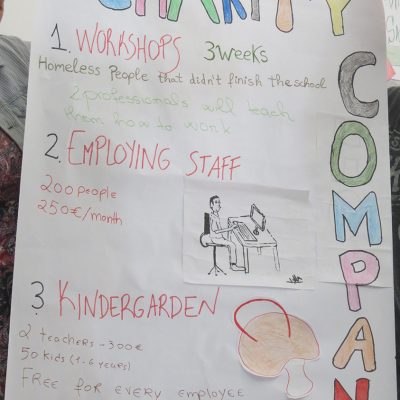 CHARITY
COMPAN
1. WORKSHOPS 3 weeks
Homeless People that didn't finish the school
2 professionals will teach
them how to work
2. EMPLOYING STAFF
200 people
250€/month
3 KINDERGARDEN
2 teachers - 300€
50 kids (1-6 years)
FREE FOR EVERY EMPLOYEE